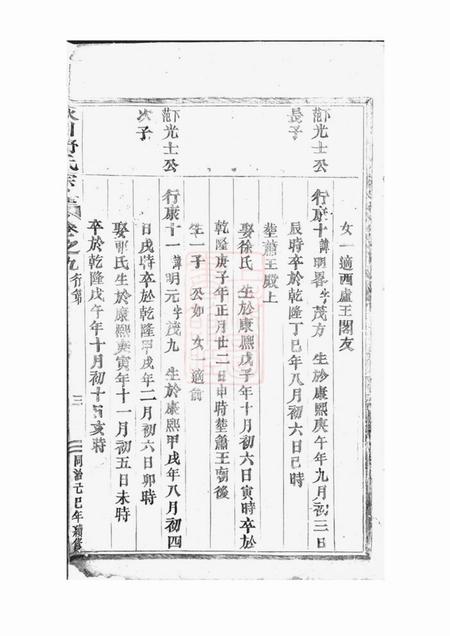 女一適西盧王閣友
光士公
長子
行康十諱明畧字茂方 生於康熙庚午年九月初三日
辰時卒於乾隆丁巳年八月初六日巳時
塟蕭王殿上
娶徐氏 生於康熙戊子年十月初六日寅時卒於
乾隆庚子年正月廿二日申時塟蕭王廟後
生一子 公如 女一適
光士公
次子
行康十一諱明元字茂九 生於康熙甲戌年八月初四
日戌時卒於乾隆甲戌年二月初六日卯時
娶 氏生於康熙庚寅年十一月初五日未時
卒於乾隆戊午年十月初十日亥時
氏宗譜 卷之九 行第 三 同治己巳年續修